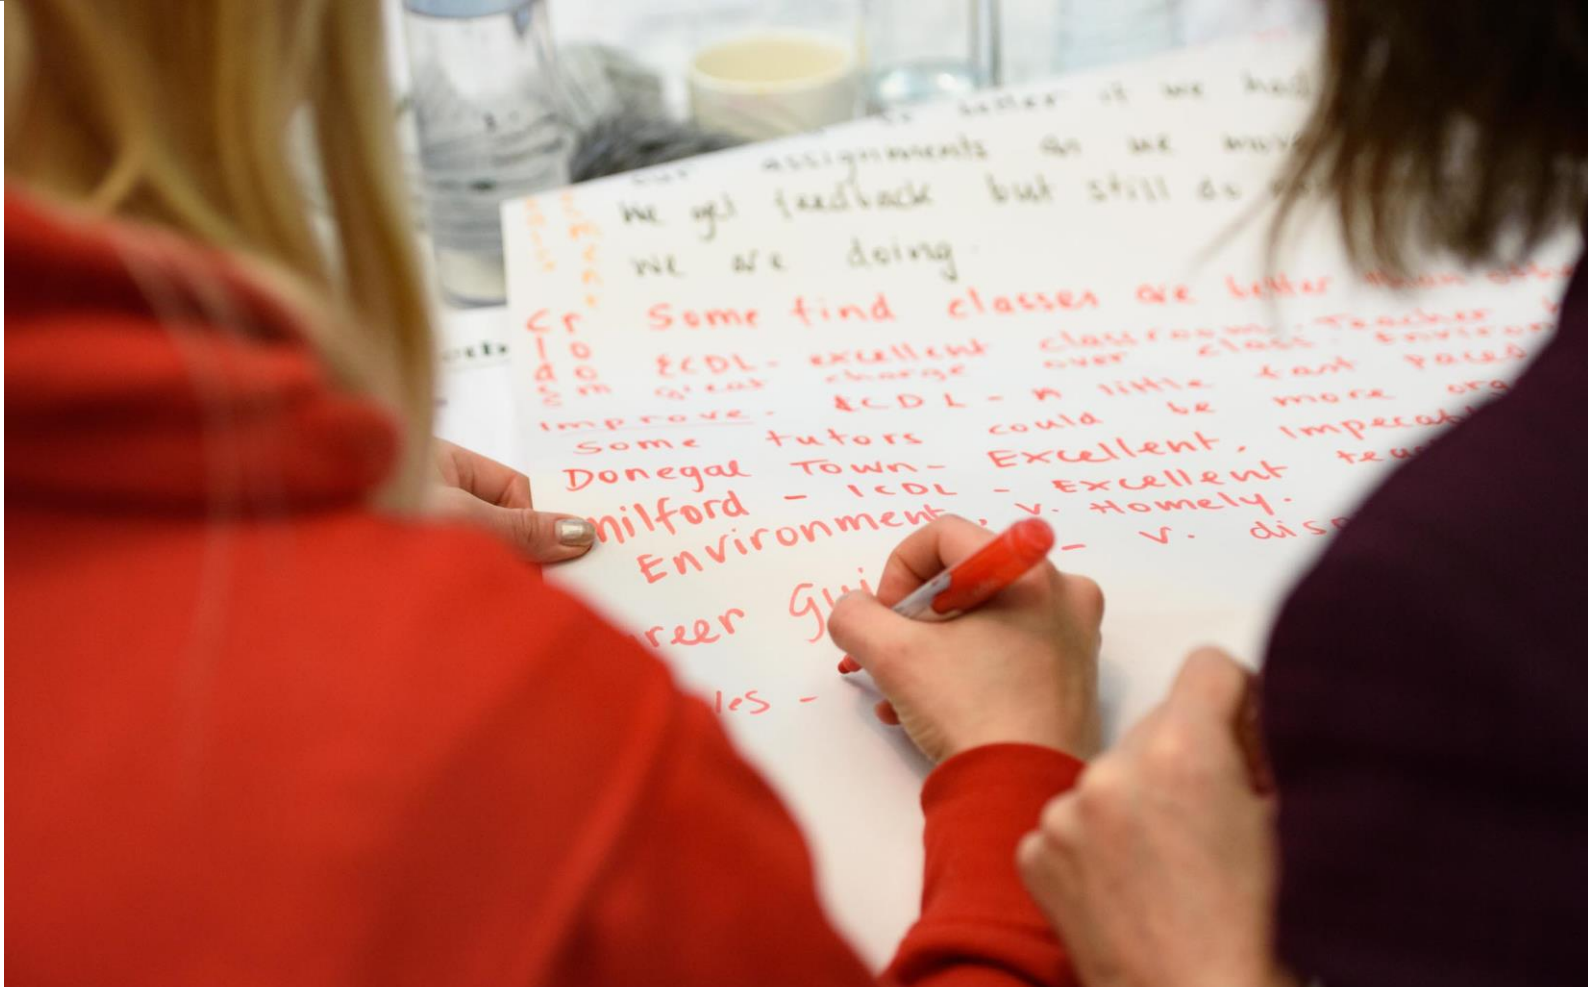 better if we had
our assignments as we move
We get feedback but still do
we are doing.
Some find classes are better than
ECDL - excellent classroom. Teacher
great charge over class.
Improve. ECDL - A little fast paced
Some tutors could be more org
Donegal Town - Excellent, Impecab
Milford - ICDL - Excellent tea
Environment, v. Homely.
reer Gui - v. disp
les -